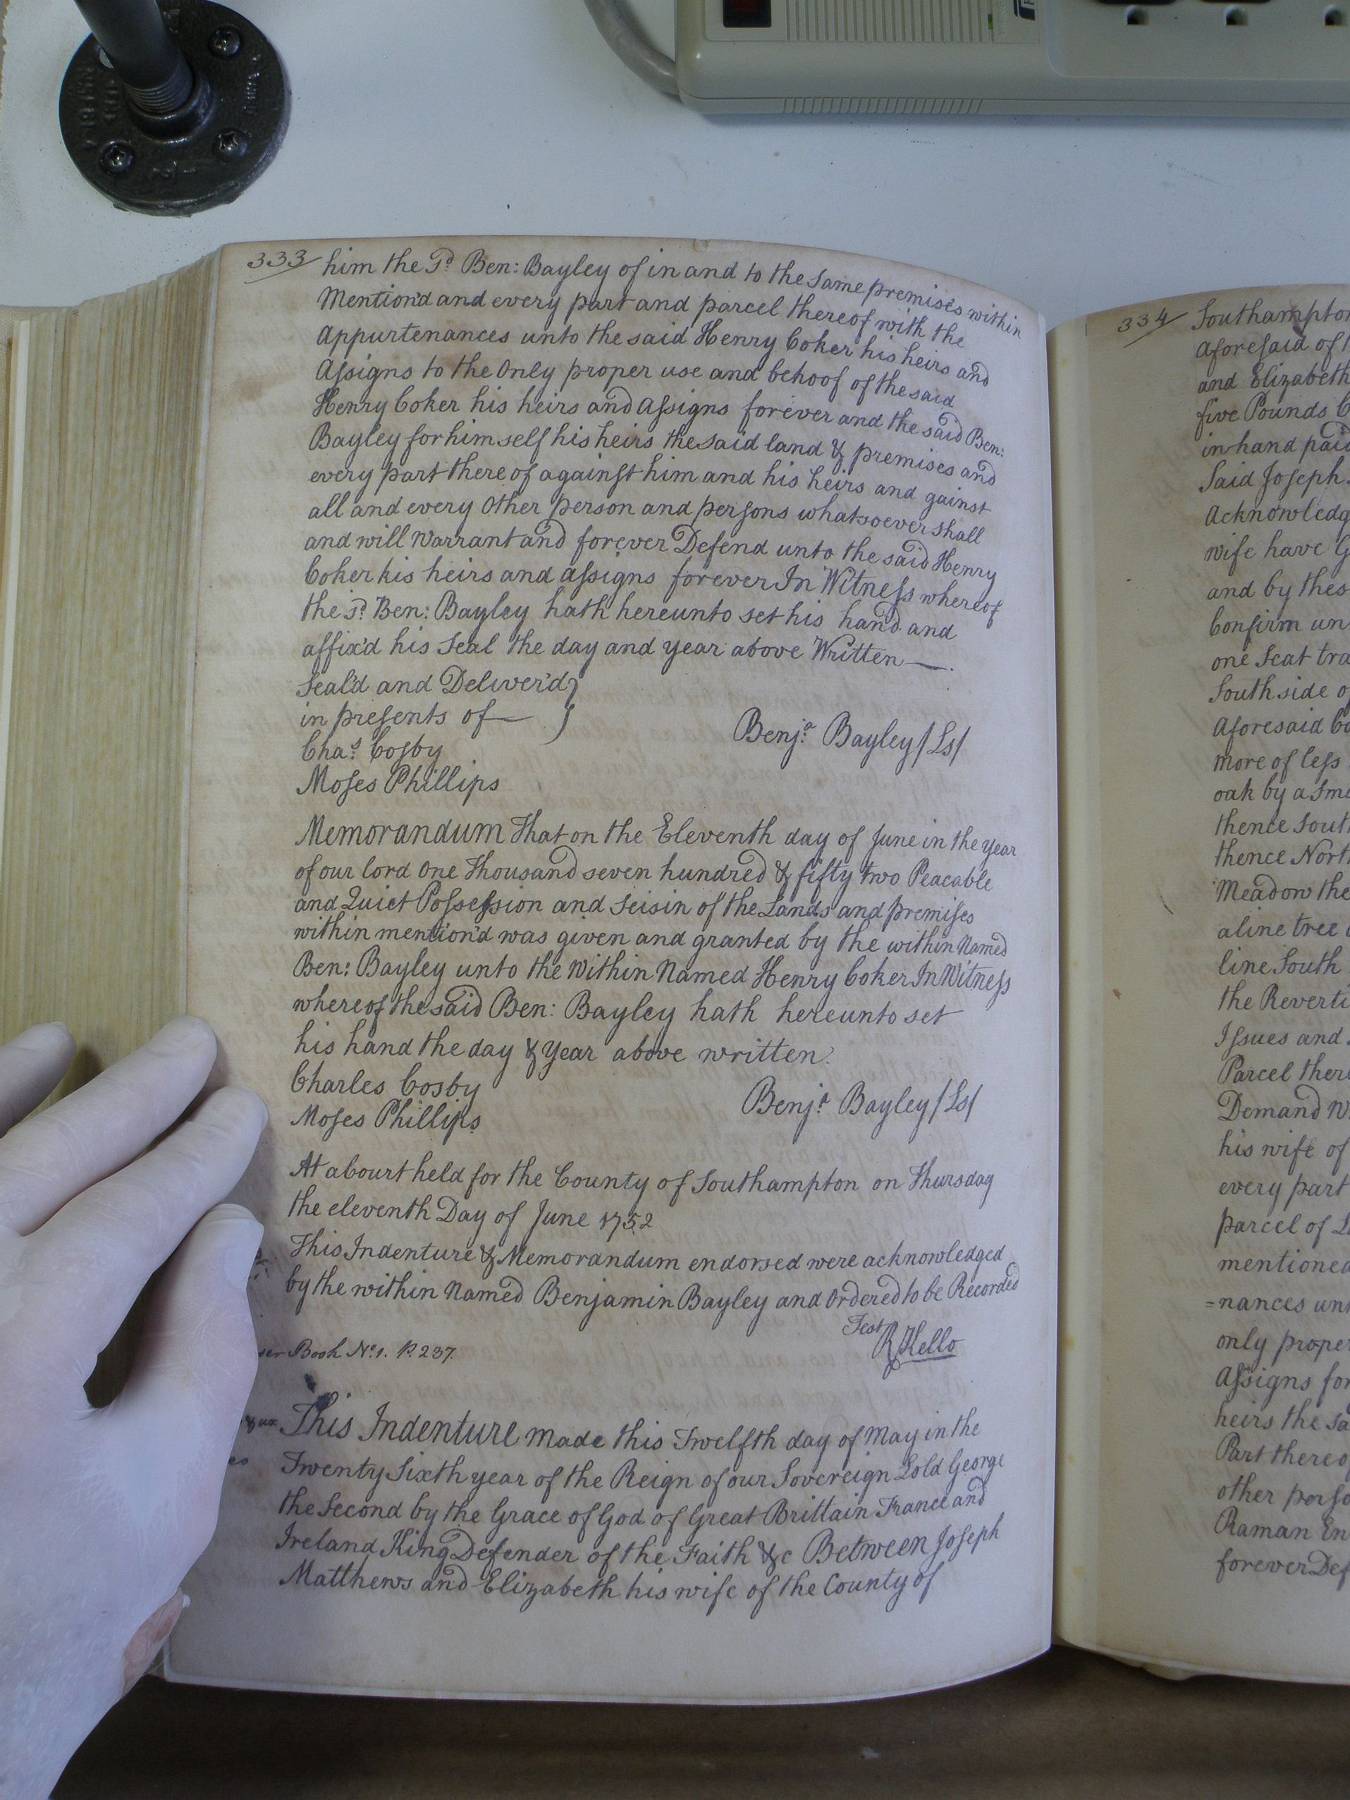 333
him the Sd. Ben: Bayley of in and to the Same premises within
Mention'd and every part and parcel thereof with the
Appurtenances unto the said Henry Coker his heirs and
Assigns to the Only proper use and behoof of the said
Henry Coker his heirs and Assigns forever and the said Ben:
Bayley for himself his heirs the said land & premises and
every part thereof against him and his heirs and gainst
all and every Other person and persons whatsoever shall
and will warrant and forever Defend unto the said Henry
Coker his heirs and assigns forever In Witness whereof
the sd. Ben: Bayley hath hereunto set his hand and
affix'd his Seal the day and year above Written
Seal'd and Deliver'd
in presents of
Chas. Cosby
Benja. Bayley /Ls/
Moses Phillips
Memorandum That on the Eleventh day of June in the year
of our lord One Thousand seven hundred & fifty two Peacable
and Quiet Possession and Seisin of the Lands and premises
within mention'd was given and granted by the within Named
Ben: Bayley unto the Within Named Henry Coker In Witness
whereof the said Ben: Bayley hath hereunto set
his hand the day & Year above written.
Charles Cosby
Benja. Bayley /Ls/
Moses Phillips
At a Court held for the County of Southampton on Thursday
the eleventh Day of June 1752
This Indenture & Memorandum endorsed were acknowledged
by the within Named Benjamin Bayley and Ordered to be Recorded
Test
R Kello
Book No. 1. P. 237.
& ux
This Indenture made this Twelfth day of May in the
Twenty Sixth year of the Reign of our Sovereign Lold George
the Second by the Grace of God of Great Brittain France and
Ireland King Defender of the Faith &c Between Joseph
Matthews and Elizabeth his wife of the County of
334
Southampton
Aforesaid of
and Elizabeth
five Pounds
in hand paid
Said Joseph
Acknowledg
wife have
and by thes
Confirm un
one Seat tra
South side of
Aforesaid
more of less
oak by a Sma
thence South
thence North
Meadow the
a line tree
line South
the Reverti
Issues and
Parcel ther
Demand
his wife of
every part
parcel of
mentioned
=nances un
only proper
Assigns for
heirs the sa
Part thereof
other perso
Raman En
forever Def